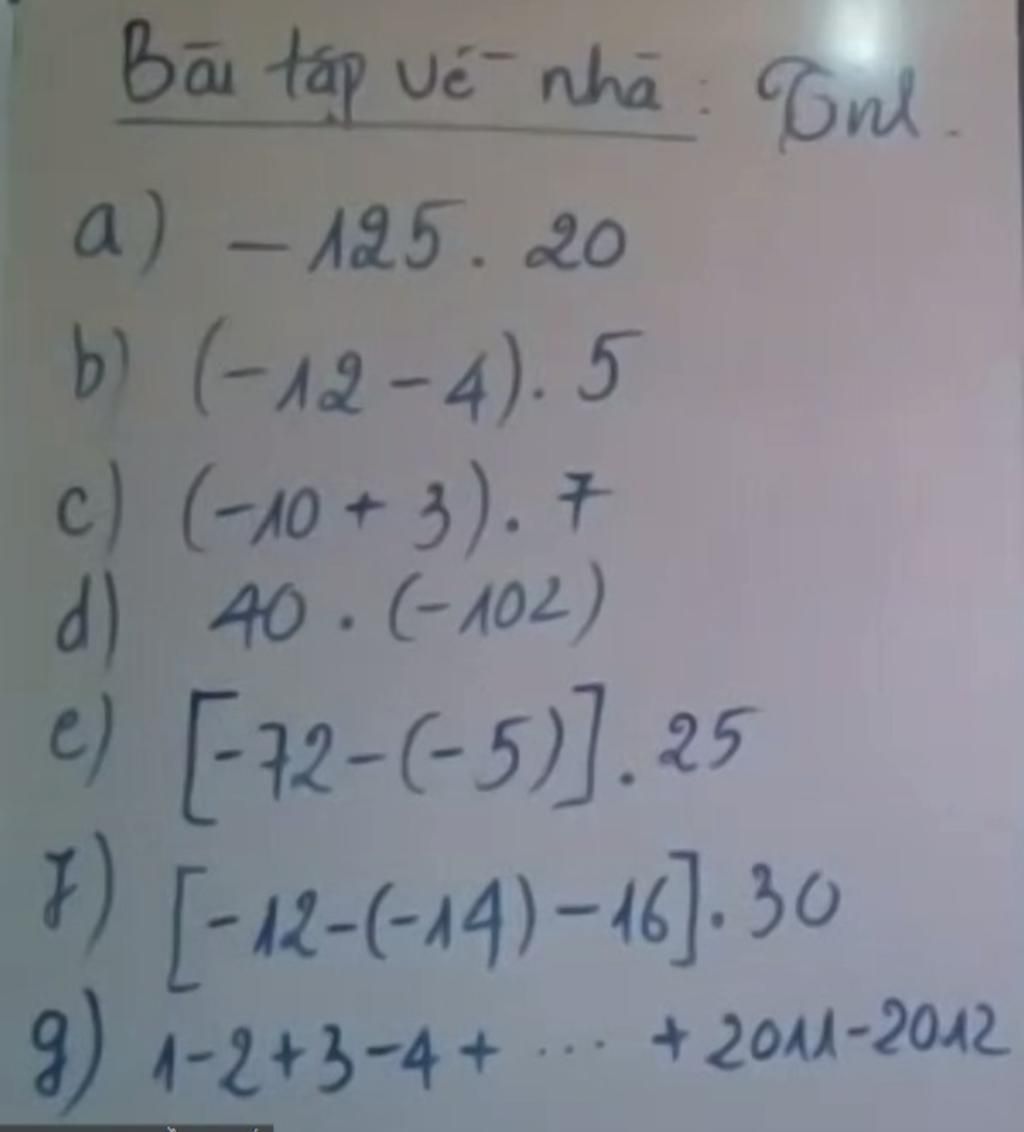 Bài tập về nhà: Tính.
a) -125. 20
b) (-12-4). 5
c) (-10 + 3). 7
d) 40. (-102)
e) [-72-(-5)]. 25
f) [-12-(-14)-16]. 30
g) 1-2+3-4+ ... + 2011-2012